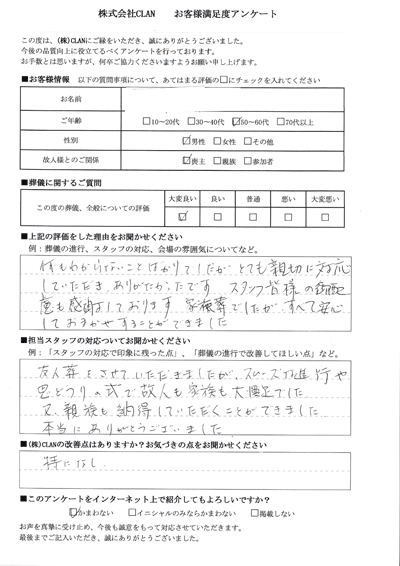 株式会社CLAN　お客様満足度アンケート
この度は、(株)CLANにご縁をいただき、誠にありがとうございました。
今後の品質向上に役立てるべくアンケートを行っております。
お手数とは思いますが、何卒ご協力くださいますようお願い申し上げます。
■お客様情報　以下の質問事項について、あてはまる評価の□にチェックを入れてください
お名前
ご年齢　□10～20代　□30～40代　☑50～60代　□70代以上
性別　☑男性　□女性　□その他
故人様とのご関係　☑喪主　□親族　□参加者
■葬儀に関するご質問
大変良い　良い　普通　悪い　大変悪い
この度の葬儀、全般についての評価　☑　□　□　□　□
■上記の評価をした理由をお聞かせください
例：葬儀の進行、スタッフの対応、会場の雰囲気についてなど。
何もわからないことばかりでしたが、とても親切に対応
していただき ありがたかったです スタッフ皆様の御配
慮も感謝しております 家族葬でしたが、すべて安心
しておまかせすることができました
■担当スタッフの対応についてお聞かせください
例：「スタッフの対応で印象に残った点」、「葬儀の進行で改善してほしい点」など。
友人葬をさせていただきましたが、スムーズな進行や
思どうりの式で故人も家族も大満足でした
又、親族も納得していただくことができました
本当にありがとうございました
■(株)CLANの改善点はありますか？お気づきの点をお聞かせください
特になし
■このアンケートをインターネット上で紹介してもよろしいですか？
☑かまわない　□イニシャルのみならかまわない　□掲載しない
お声を真摯に受け止め、今後も誠意をもって対応させていただきます。
最後までご記入いただき、誠にありがとうございました。